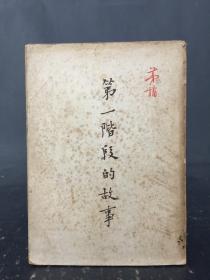 第一階段的故事
茅盾